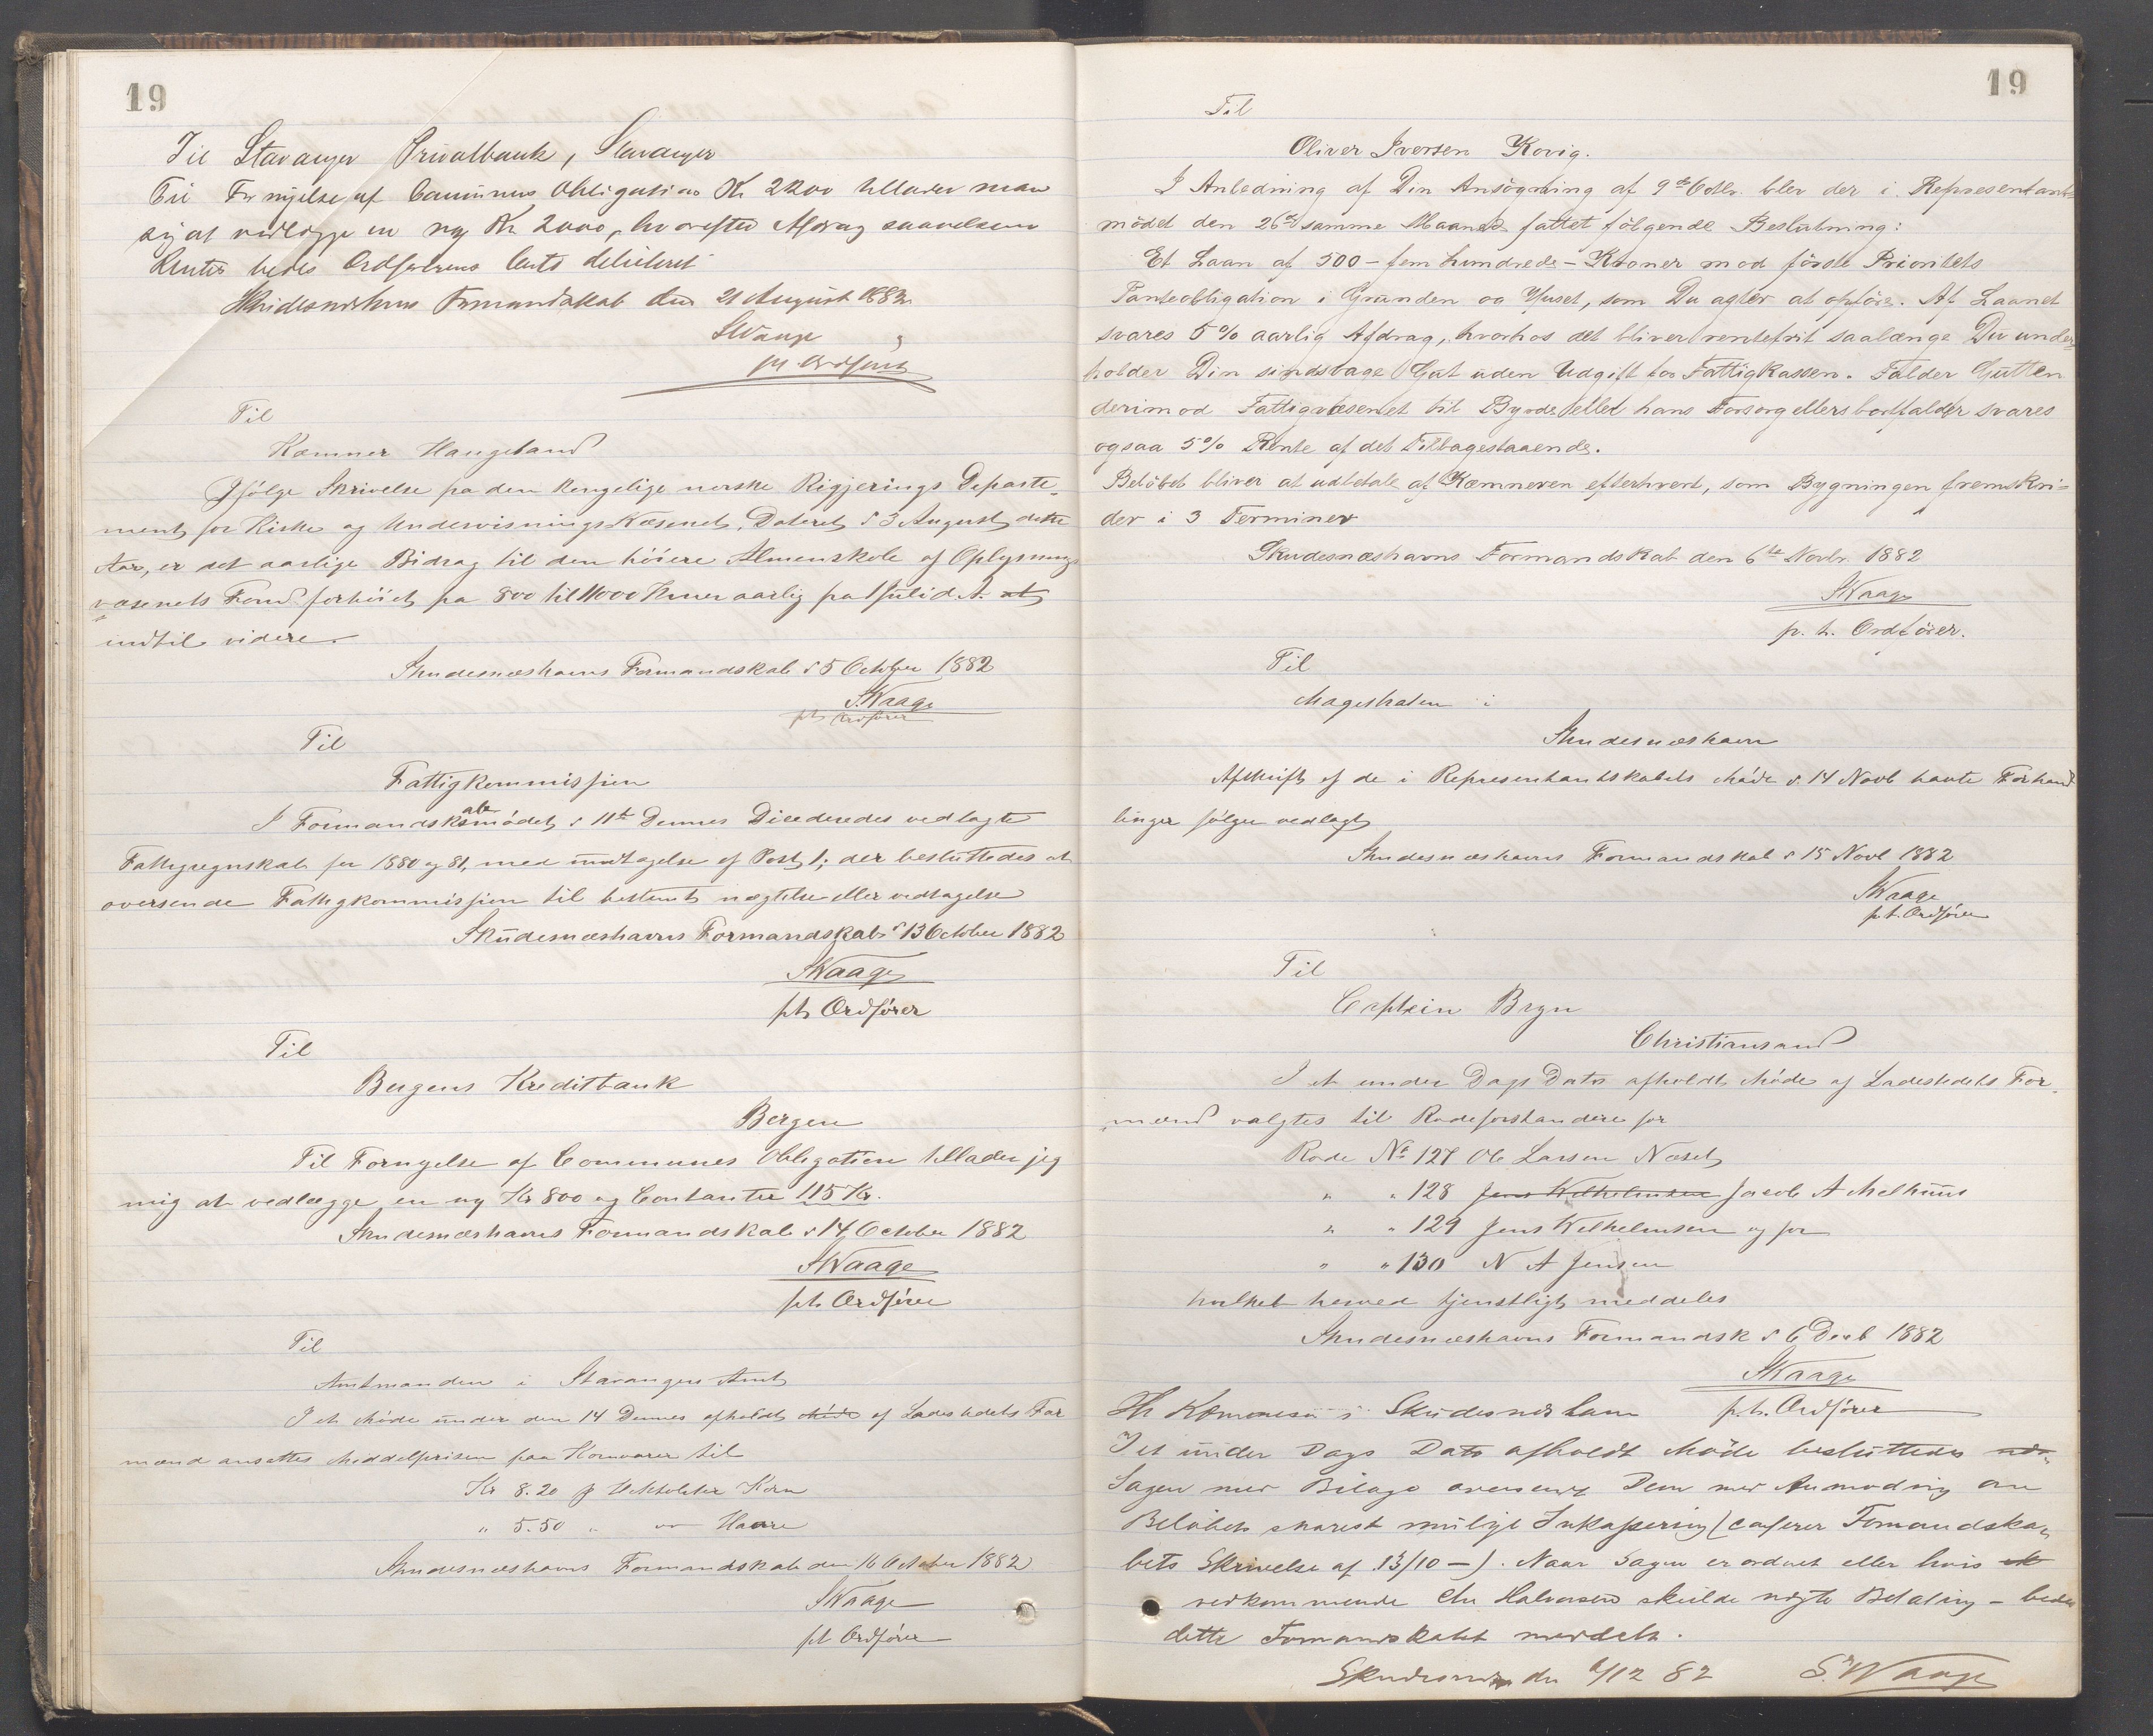 19
Til Stavanger Privatbank, Stavanger
Til Fornyelse af Communens Obligation Kr 2200 tillader man
sig at vedlægge en ny Kr 2000, hvorefter Afdrag saavelsom
Renter bedes Ordførerens Conto debiteret
Skudesnæshavns Formandskab den 21 August 1882
SWaage
pt Ordfører
Til
Kæmner Haugeland
Ifølge Skrivelse fra den kongelige norske Regjerings Departe-
ment for Kirke og Undervisnings Væsenet, Dateret d 3 August dette
Aar, er det aarlige Bidrag til den höiere Almenskole af Oplysnings
væsenets Fond forhöiet fra 800 til 1000 Kroner aarlig fra 1 Juli d. A. at
indtil videre.
Skudesnæshavns Formandskab d 5 October 1882
S.Waage
pt Ordfører
Til
Fattigkommissjien
I Formandskabsmödet d 11te Dennes Dicideredes vedlagte
Fattigregnskab for 1880 og 81, med undtagelse af Post 1; der besluttedes at
oversende Fattigkommissjien til bestemt nægtelse eller vedtagelse
Skudesnæshavns Formandskab d 13 October 1882
SWaage
pt Ordfører
Til
Bergens Kreditbank
Bergen
Til Fornyelse af Communes Obligation tillader jeg
mig at vedlægge en ny Kr 800 og Contanter 115 Kr.
Skudesnæshavns Formandskab d 14 October 1882
SWaage
pt Ordfører
Til
Amtmanden i Stavangers Amt
I et Möde under den 14 Dennes afholdt Möde af Ladestedets For
mænd ansattes Middelprisen paa Kornvarer til
Kr 8.20 pr Hektoliter Korn
" 5.50 " — Havre
Skudesnæshavns Formandskab den 16 October 1882
SWaage
pt Ordfører
19
Til
Oliver Iversen Kovig.
I Anledning af Din Ansögning af 9de Octbr. blev der i Representant-
mödet den 26de samme Maaned fattet fölgende Beslutning:
Et Laan af 500 - fem hundrede - Kroner mod förste Prioritets
Panteobligation i Grunden og Huset, som Du agter at opföre. Af Laanet
svares 5 % aarlig Afdrag, hvorhos det bliver rentefrit saalænge Du under-
holder Din sindsvage Gut uden Udgift for Fattigkassen. Falder Gutten
derimod Fattigvæsenet til Byrde eller hans Forsorg ellers bortfalder svares
ogsaa 5 % Rente af det Tilbagestaaende.
Belöbet bliver at udbetale af Kæmneren efterhvert, som Bygningen fremskri-
der i 3 Terminer
Skudesnæshavns Formandskab den 6te Novbr. 1882
SWaage
p. t. Ordförer.
Til
Magistraten i
Skudesnæshavn
Afskrift af de i Representantskabets Möde d. 14 Novb havte Forhand
linger fölger vedlagt
Skudesnæshavns Formandskab d 15 Novb 1882
SWaage
pt. Ordfører
Til
Captein Bryn
Christiansand
I et under Dags Dato afholdt Möde af Ladestedets For-
mænd valgtes til Rodeforstandere for
Rode No 127 Ole Larsen Næset
" " 128 Jens Wilhelmsen Jacob A Melhuus
" " 129 Jens Wilhelmsen og for
" " 130 N A Jensen
hvilket herved tjenstligt meddeles
Skudesnæshavns Formandsk d 6 Decb 1882
SWaage
p.t. Ordfører
Hr Kæmneren i Skudesnæshavn
I et under Dags Dato afholdt Möde besluttedes
Sagen med Bilage oversendt Dem med Anmodning om
Belöbets snarest mulige Inkassering (conferer Formandska-
bets Skrivelse af 13/10 —). Naar Sagen er ordnet eller hvis
vedkommende Chr Halvorsen skulde nægte Betaling – bedes
dette Formandskabet meddelt.
Skudesnæs den 6/12 82 S.Waage